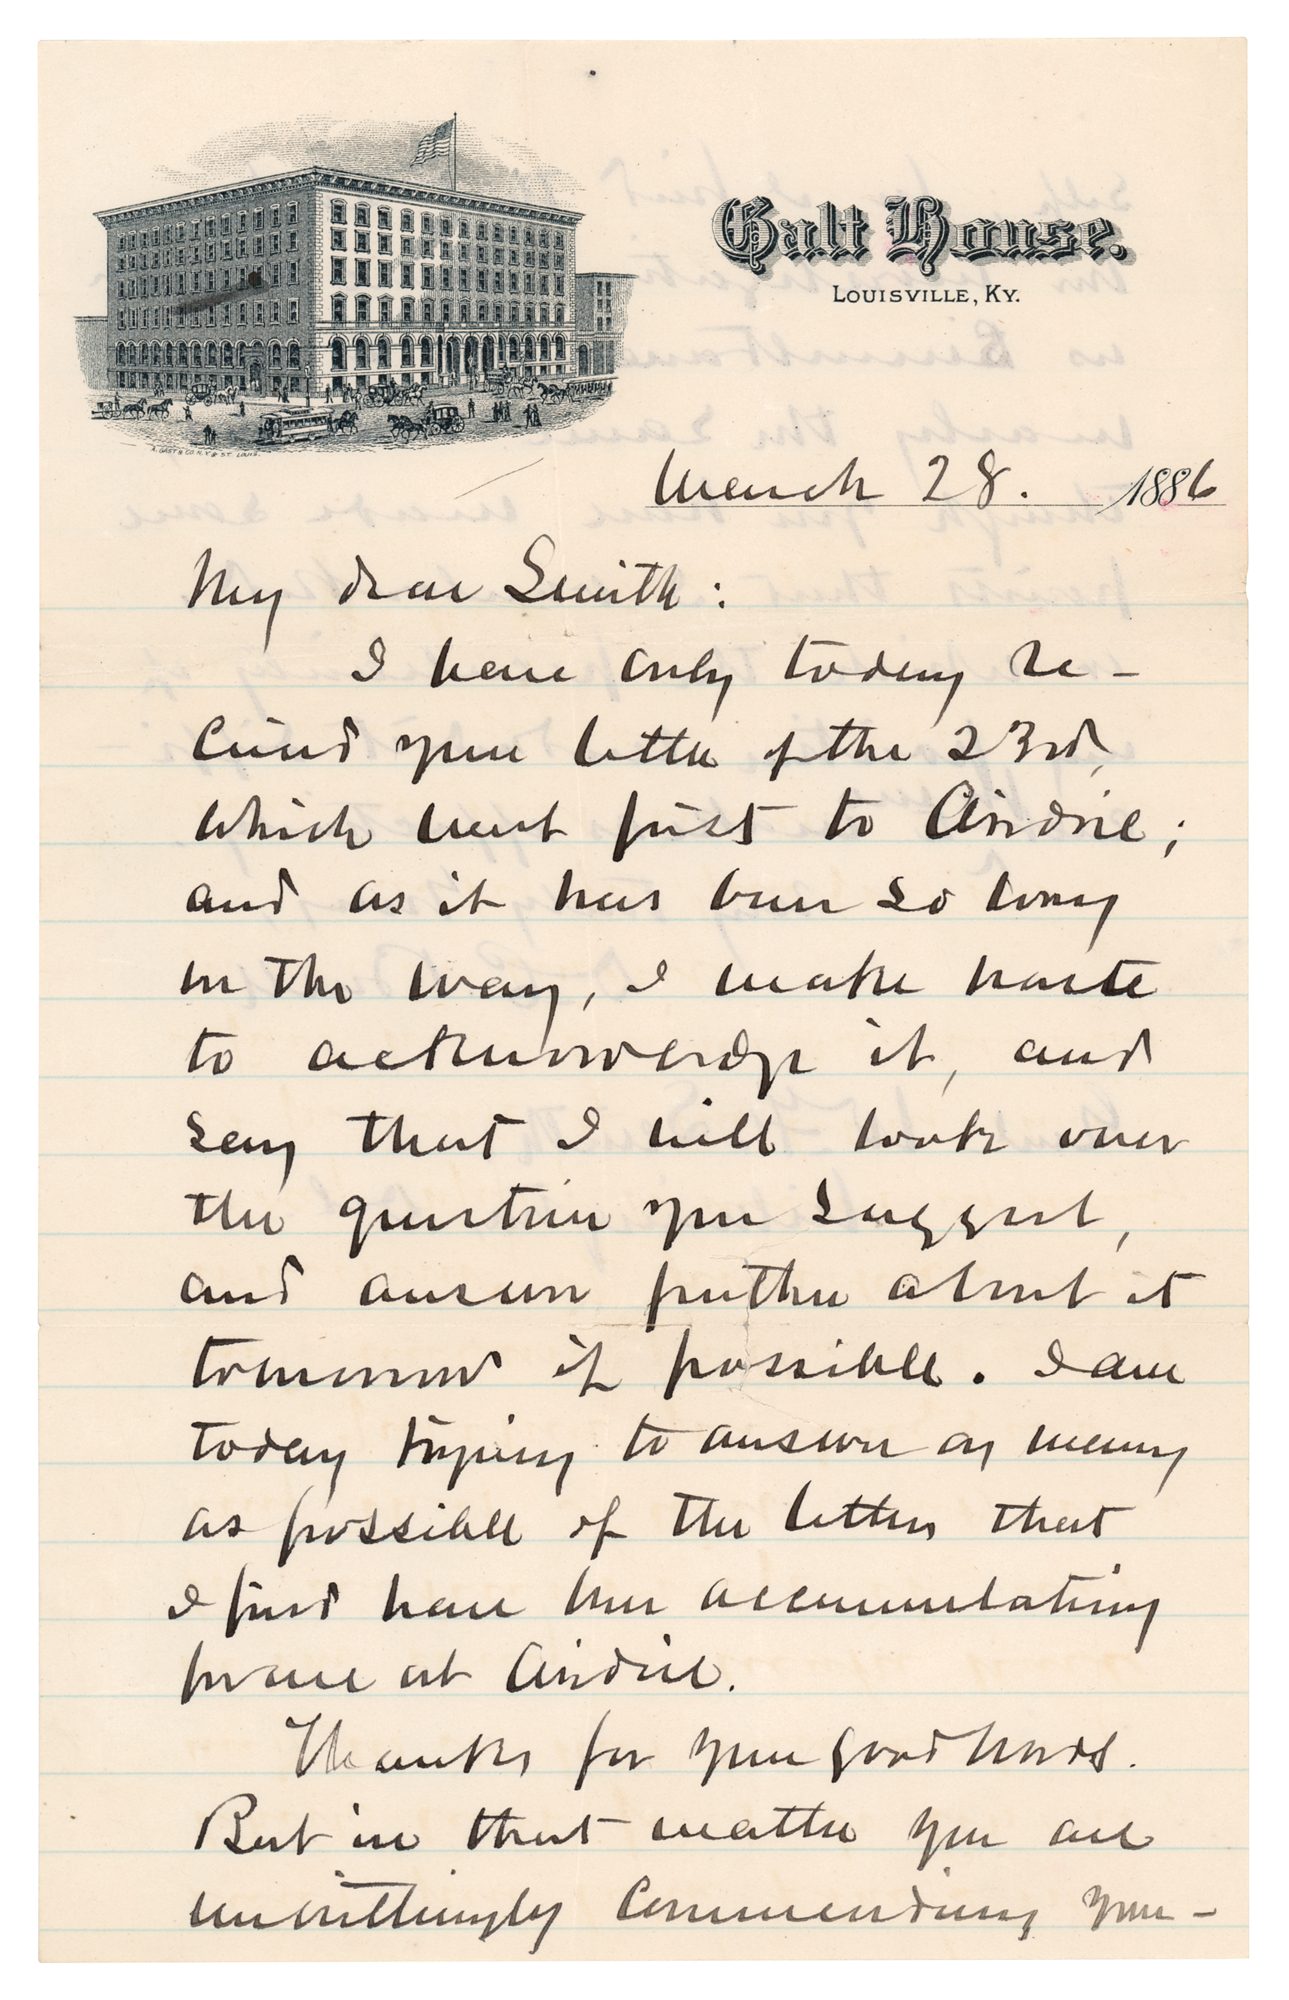 Galt House.
LOUISVILLE, KY.
A. GAST & CO. N.Y. & ST. LOUIS.
March 28. 1886
My dear Smith:
I have only today re-
ceived your letter of the 23rd,
which went first to Airdrie;
and as it has been so long
on the way, I make haste
to acknowledge it, and
say that I will look over
the question you suggest,
and answer further about it
tomorrow if possible. I am
today trying to answer as many
as possible of the letters that
I find have been accumulating
for me at Airdrie.
Thanks for your good words.
But in that matter you are
unwittingly commending your-